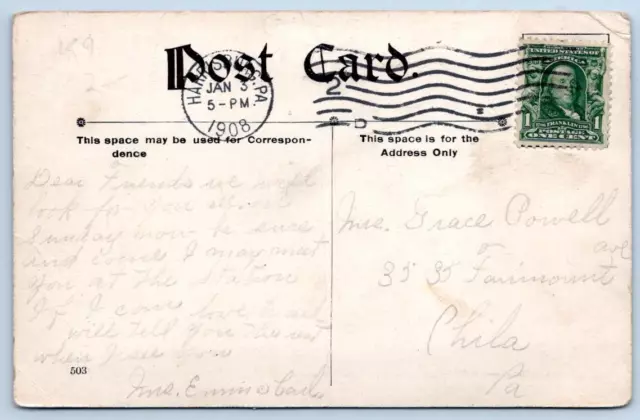 189
Post Card.
HARRISBURG, PA.
JAN 3
5-PM
1908
2
D
UNITED STATES OF AMERICA
1 FRANKLIN 1
POSTAGE
ONE CENT
This space may be used for Correspon-
dence
This space is for the
Address Only
Dear Friends we will
look for you
Sunday now be sure
and come I may meet
you at the Station
If I come love to all
will tell you the rest
when I see you
503
Mrs.
Mrs. Grace Powell
ave
3535 Fairmount
Phila
Pa